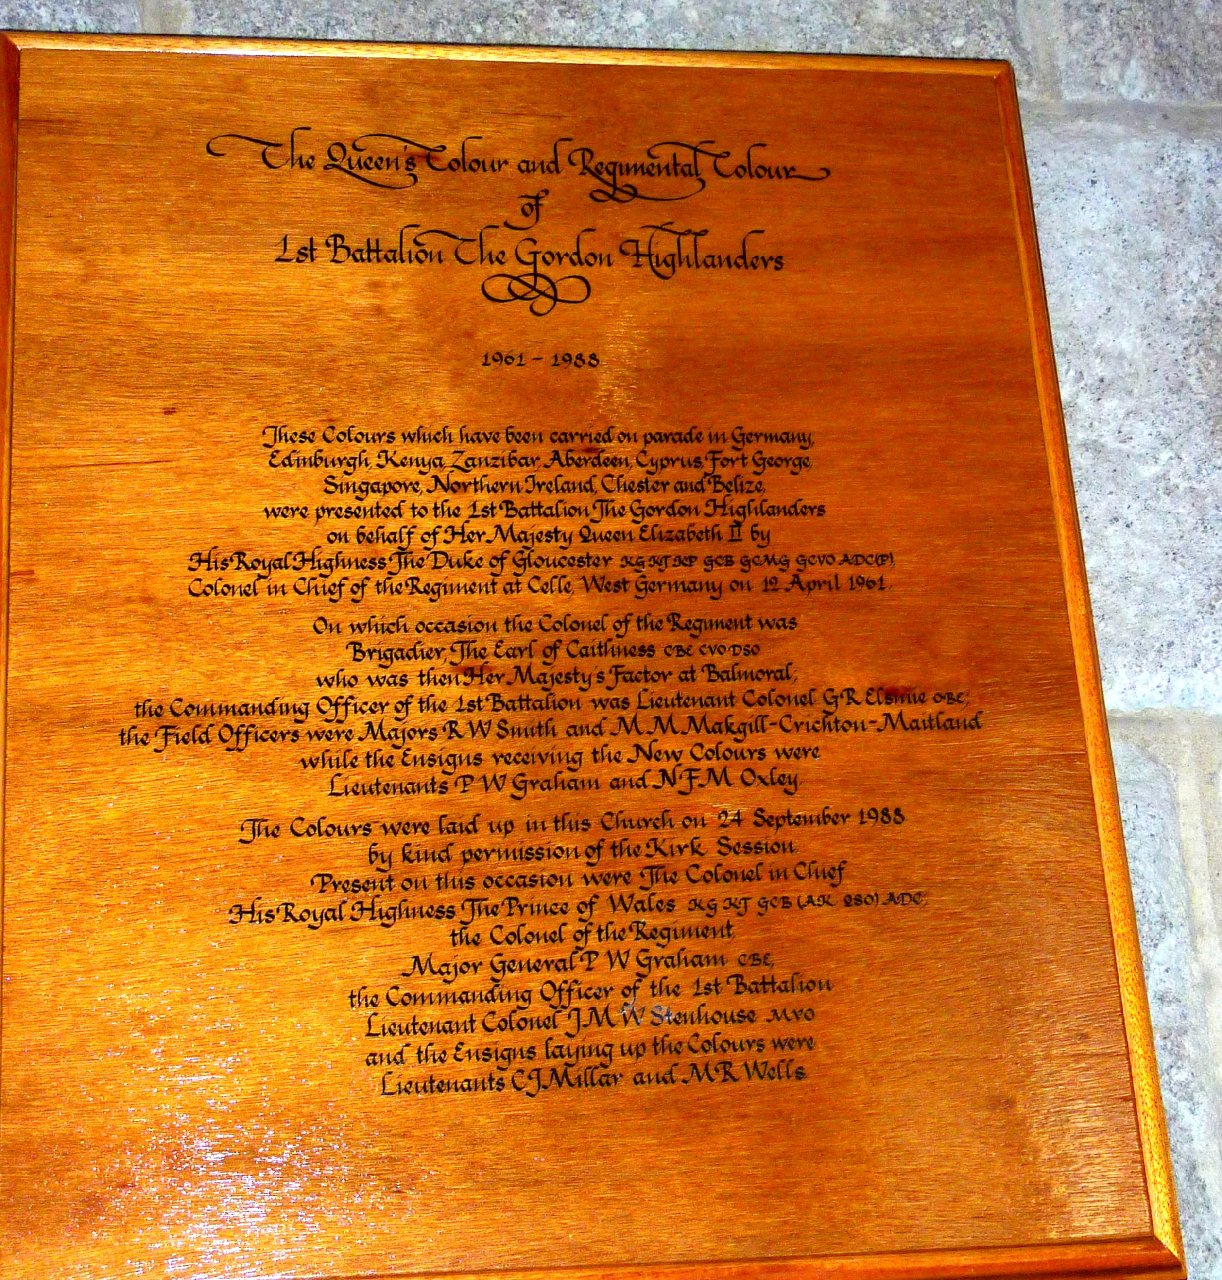 The Queen's Colour and Regimental Colour
of
1st Battalion The Gordon Highlanders
1961 - 1988
These Colours which have been carried on parade in Germany,
Edinburgh, Kenya, Zanzibar, Aberdeen, Cyprus, Fort George,
Singapore, Northern Ireland, Chester and Belize,
were presented to the 1st Battalion The Gordon Highlanders
on behalf of Her Majesty Queen Elizabeth II by
His Royal Highness The Duke of Gloucester KG KT KP GCB GCMG GCVO ADC(P)
Colonel in Chief of the Regiment at Celle, West Germany on 12 April 1961.
On which occasion the Colonel of the Regiment was
Brigadier, The Earl of Caithness CBE CVO DSO
who was then Her Majesty's Factor at Balmoral;
the Commanding Officer of the 1st Battalion was Lieutenant Colonel G R Elsmie OBE;
the Field Officers were Majors R W Smith and M M Makgill-Crichton-Maitland
while the Ensigns receiving the New Colours were
Lieutenants P W Graham and N F M Oxley.
The Colours were laid up in this Church on 24 September 1988
by kind permission of the Kirk Session.
Present on this occasion were The Colonel in Chief
His Royal Highness The Prince of Wales KG KT GCB (AK QSO) ADC;
the Colonel of the Regiment,
Major General P W Graham CBE,
the Commanding Officer of the 1st Battalion
Lieutenant Colonel J M W Stenhouse MVO
and the Ensigns laying up the Colours were
Lieutenants C J Millar and M R Wells.